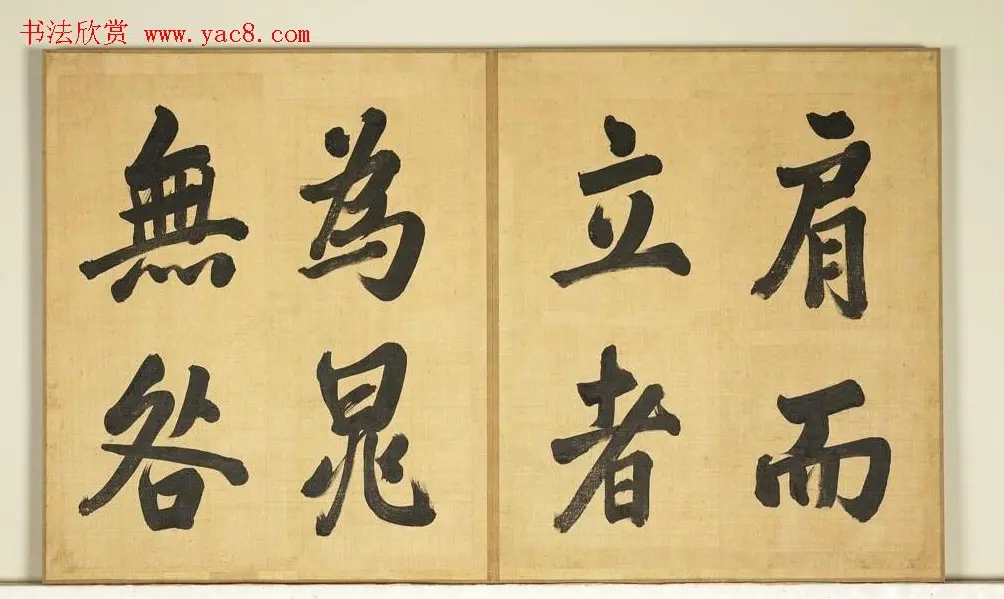 书法欣赏 www.yac8.com
肩而
立者
為晁
無咎